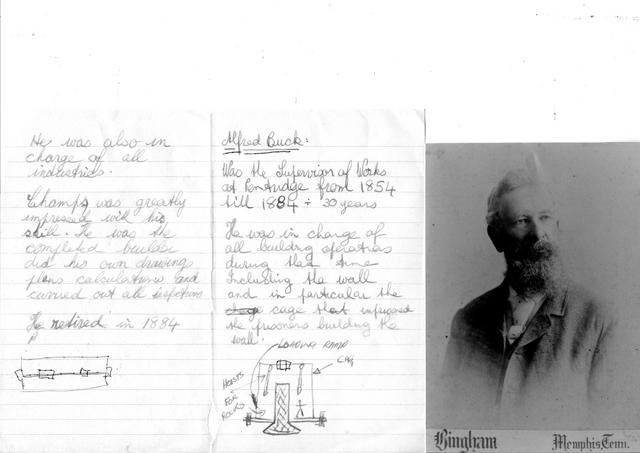 He was also in
charge of all
industries.
Champ was greatly
impressed with his
skill. He was the
completed builder
did his own drawings
plans calculations and
carried out all inspections
He retired in 1884
Alfred Buck:
Was the Supervisor of Works
at Pentridge from 1854
till 1884 ÷ 30 years
He was in charge of
all building operations
during that time
Including the wall
and in particular the
cage that imprisoned
the prisoners building the
wall.
LOADING RAMP
CAGE
HOISTS
FOR
ROCKS
Bingham Memphis, Tenn.